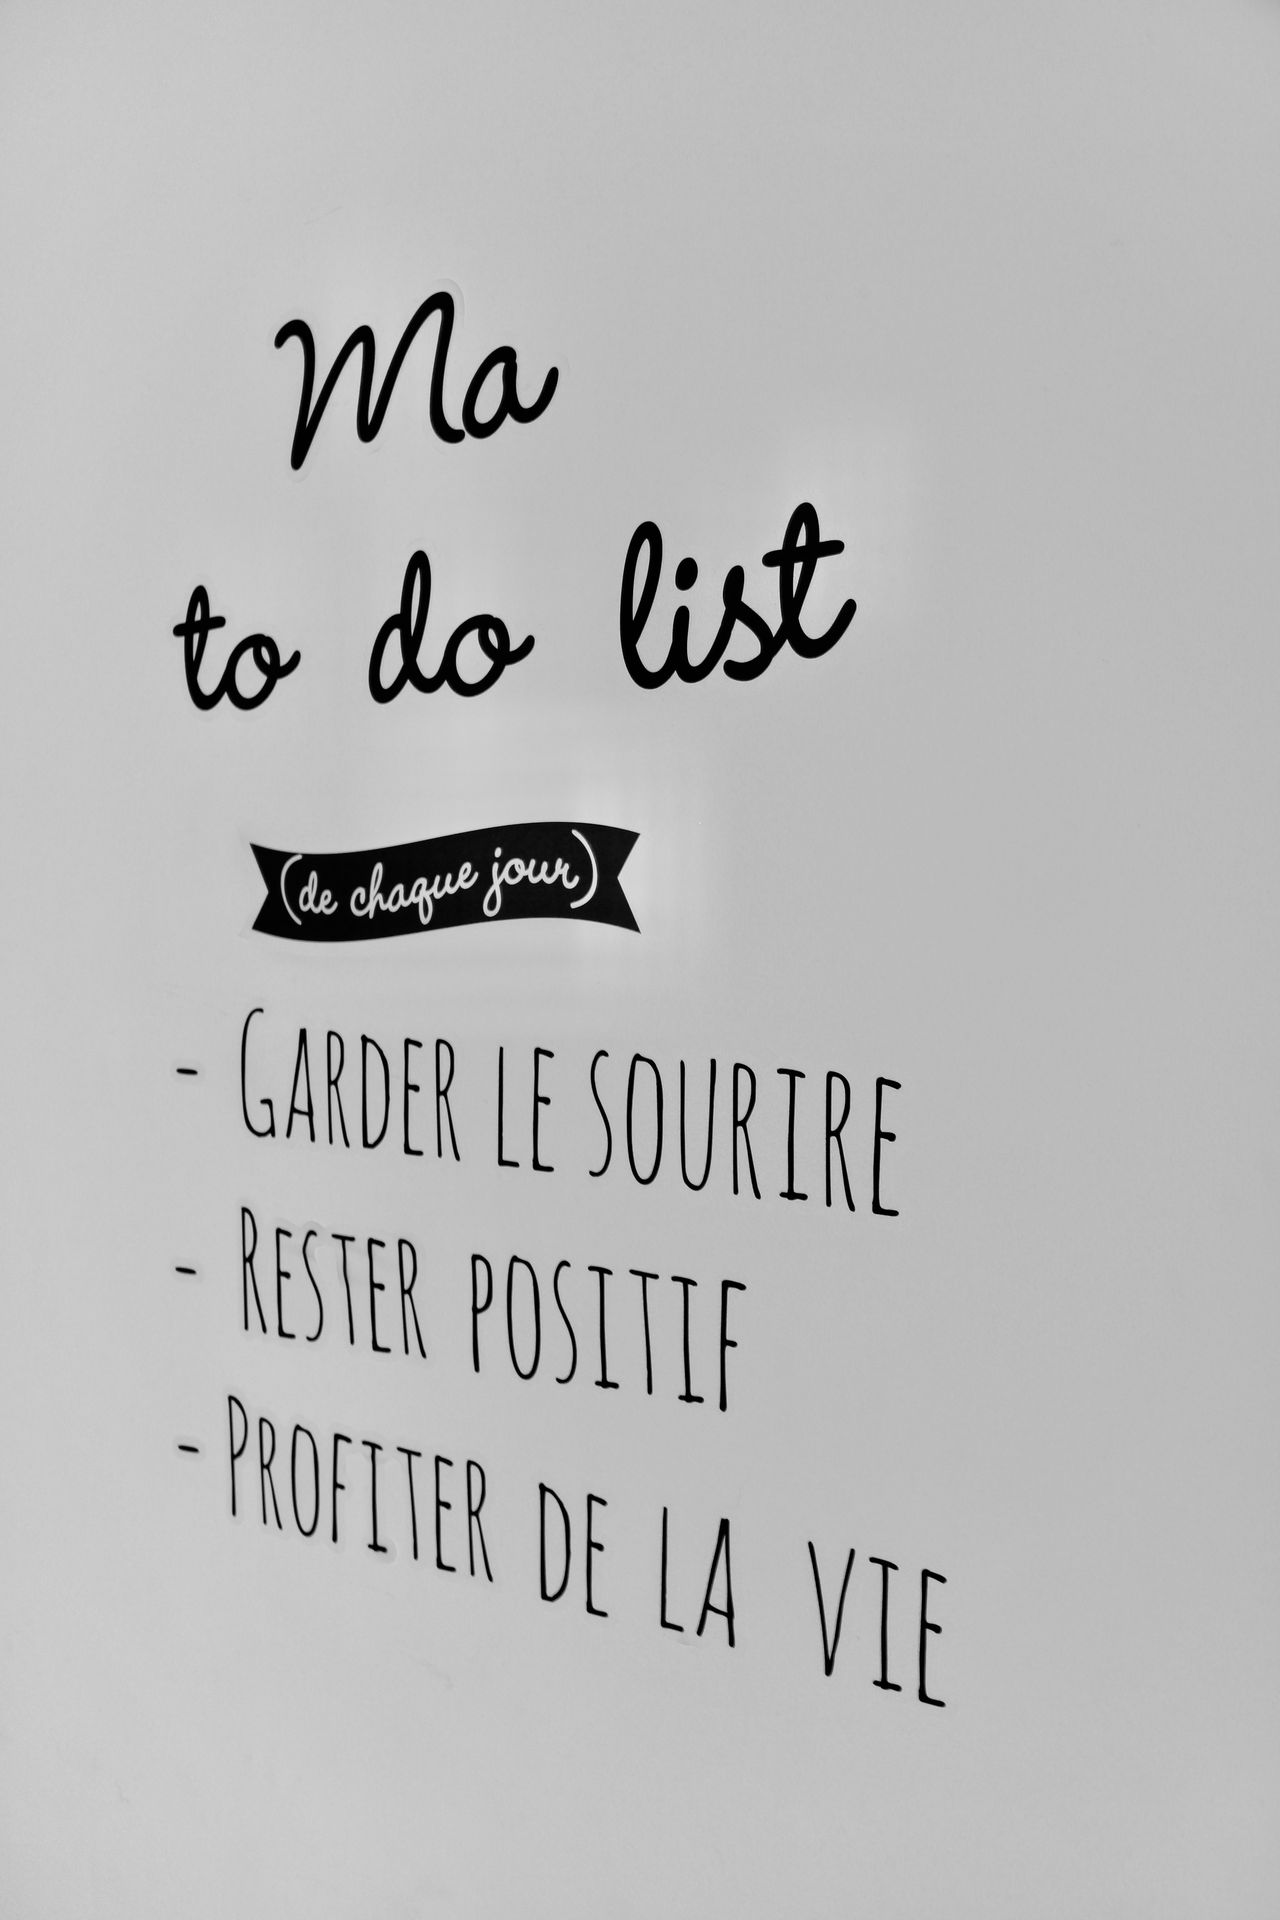 Ma
to do list
(de chaque jour)
- GARDER LE SOURIRE
- RESTER POSITIF
- PROFITER DE LA VIE